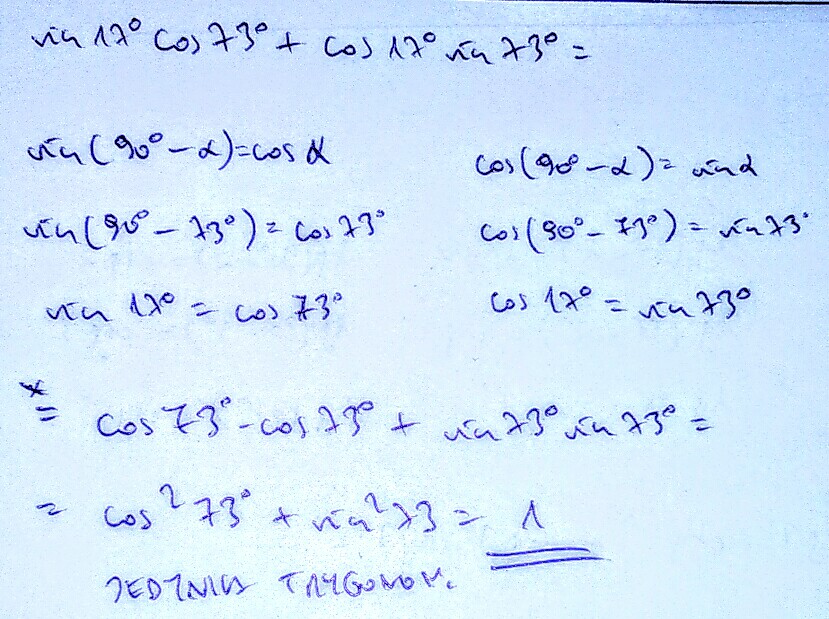 sin 17° cos 73° + cos 17° sin 73° =
sin(90° - α) = cos α
cos(90° - α) = sin α
sin(90° - 73°) = cos 73°
cos(90° - 73°) = sin 73°
sin 17° = cos 73°
cos 17° = sin 73°
* = cos 73° - cos 73° + sin 73° sin 73° =
= cos² 73° + sin² 73 = 1
JEDYNKA TRYGONOM.